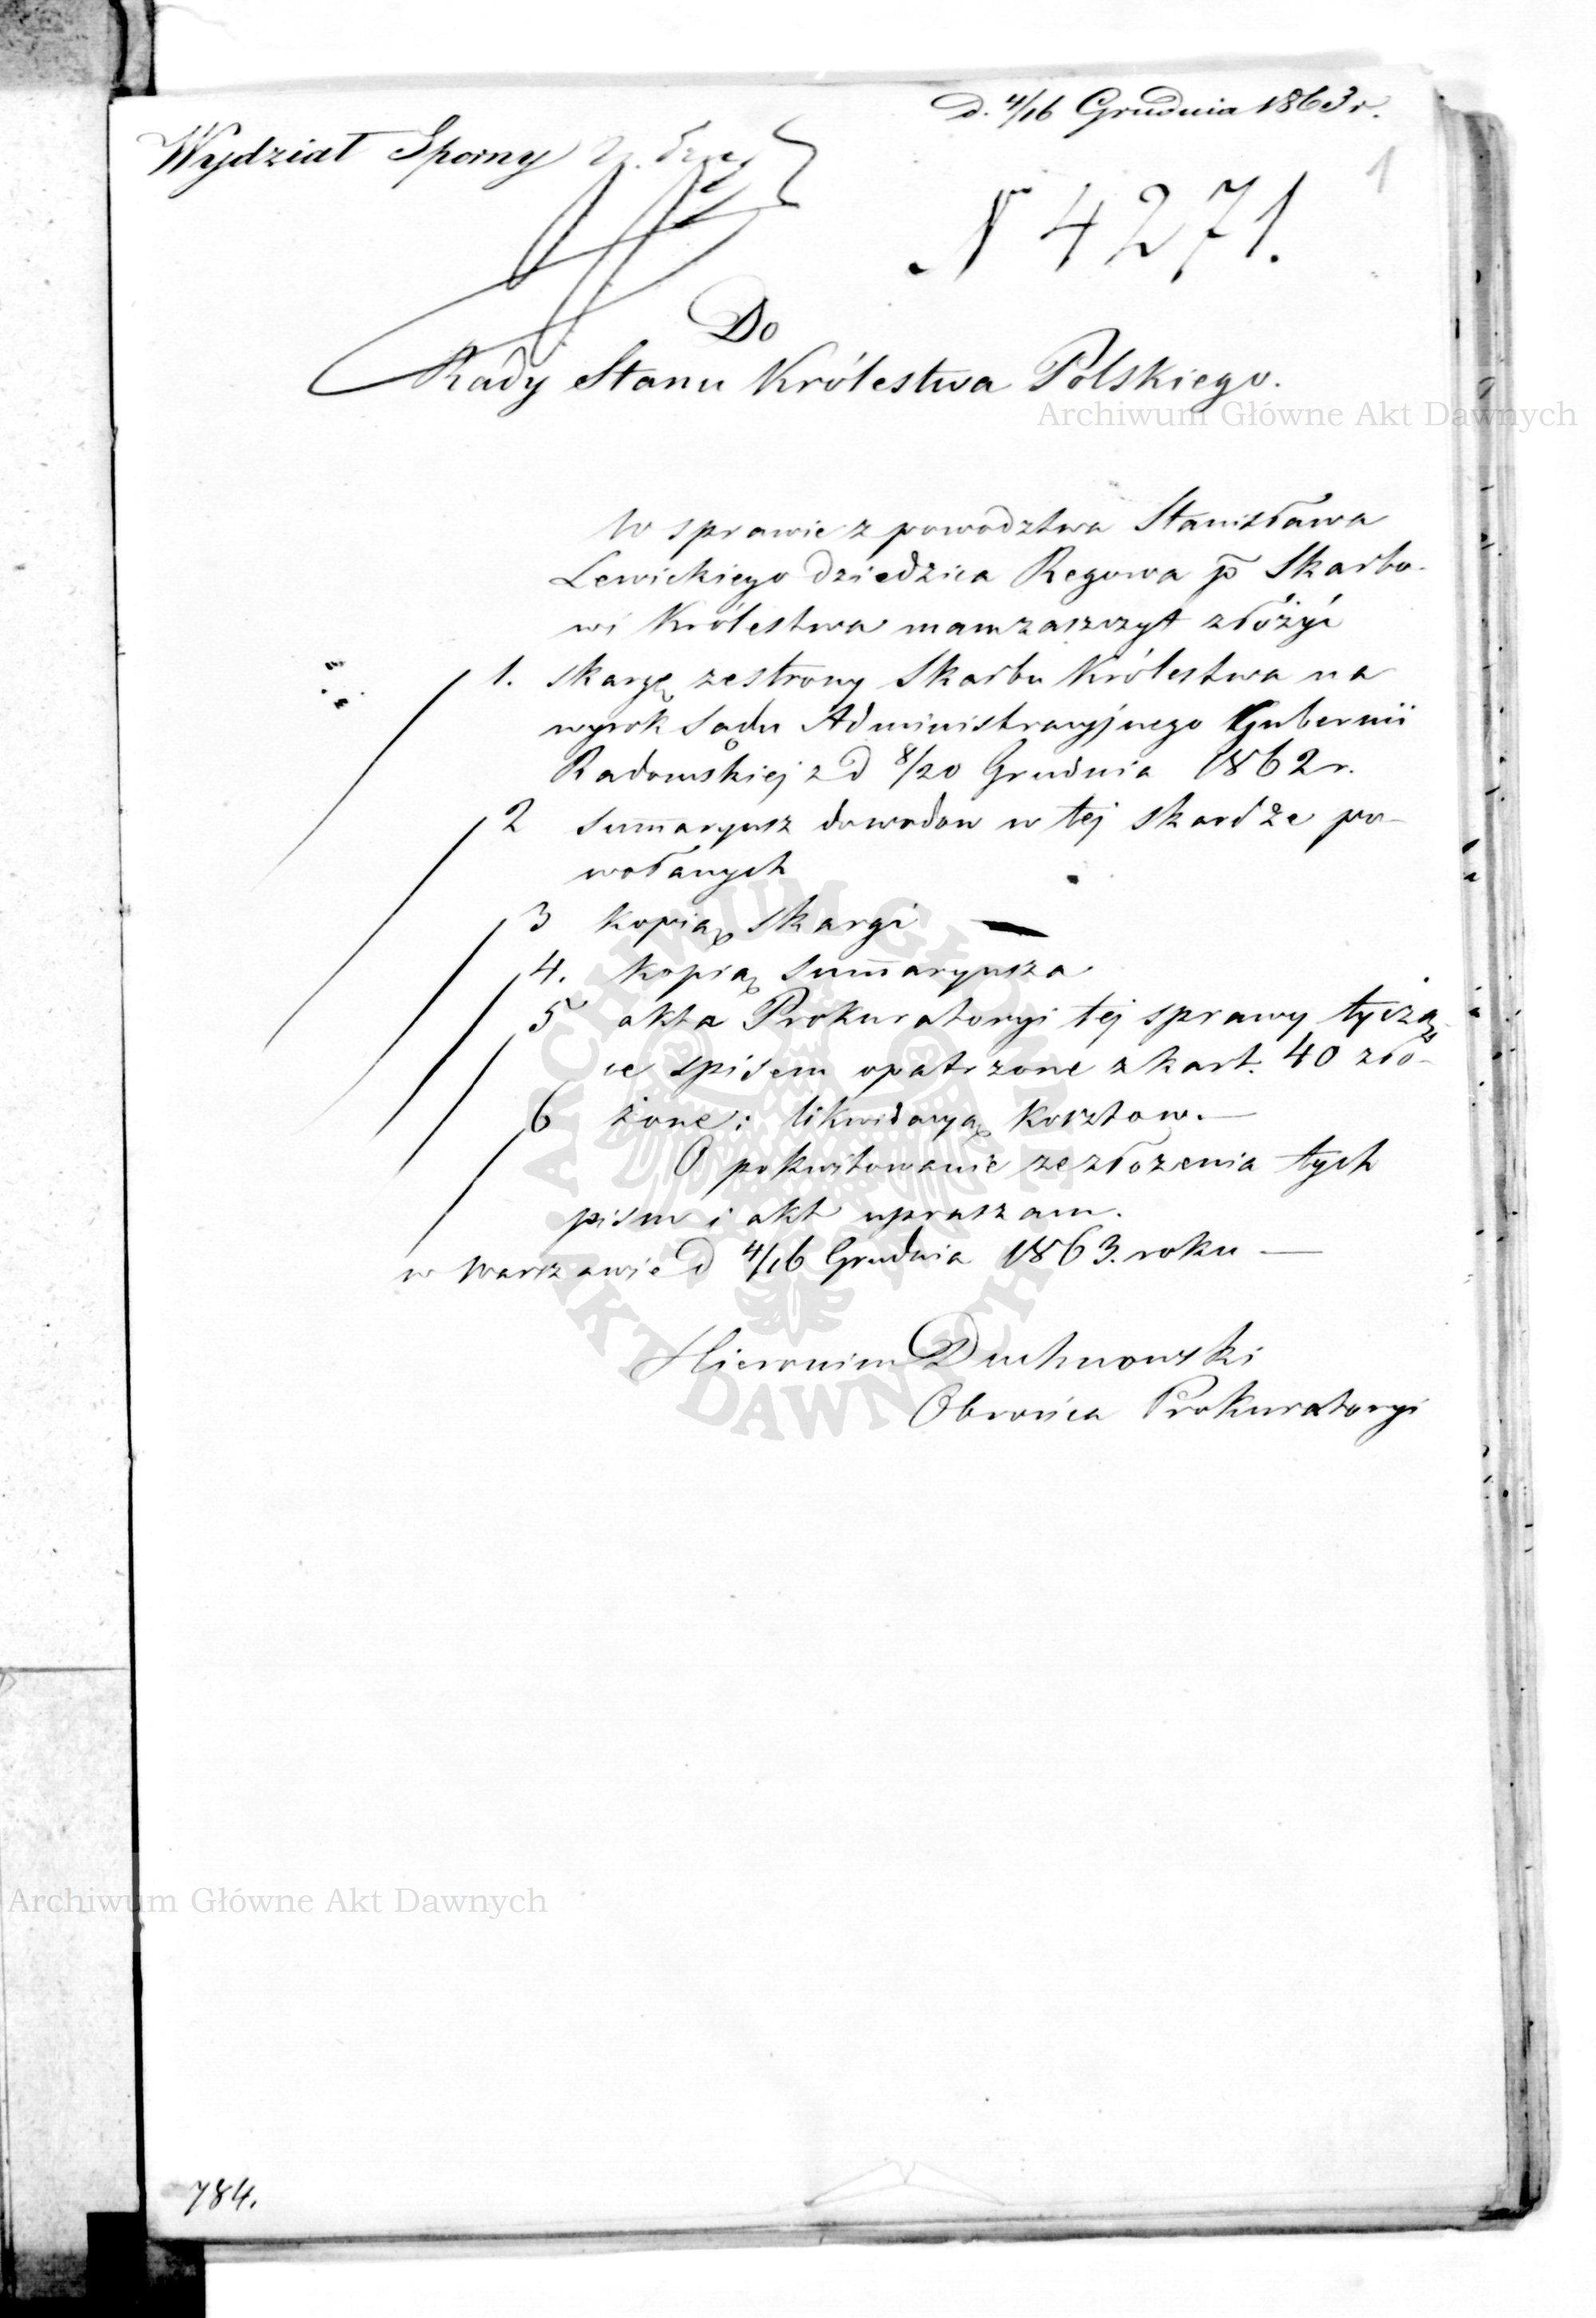 D. 4/16 Grudnia 1863 r.
Wydział Sporny
1
N 4271.
Do
Rady Stanu Królestwa Polskiego.
Archiwum Główne Akt Dawnych
W sprawie z powodztwa Stanisława
Lewickiego dziedzica Regowa p̄ Skarbo-
wi Królestwa mam zaszczyt złożyć
1. skargę ze strony Skarbu Królestwa na
wyrok Sądu Administracyjnego Gubernii
Radomskiej z d 8/20 Grudnia 1862 r.
2 sum̄aryusz dowodow w tej skardze po-
wołanych
3 kopią skargi —
4. kopią sum̄aryusza
5 akta Prokuratoryi tej sprawy tyczą-
ce spisem opatrzone z kart. 40 zło-
6 żone i likwidacyą kosztow. —
O pokwitowanie ze złożenia tych
pism i akt upraszam.
w Warszawie d 4/16 Grudnia 1863. roku —
Hieronim Duchnowski
Obrońca Prokuratoryi
ARCHIWUM GŁÓWNE AKT DAWNYCH
Archiwum Główne Akt Dawnych
784.